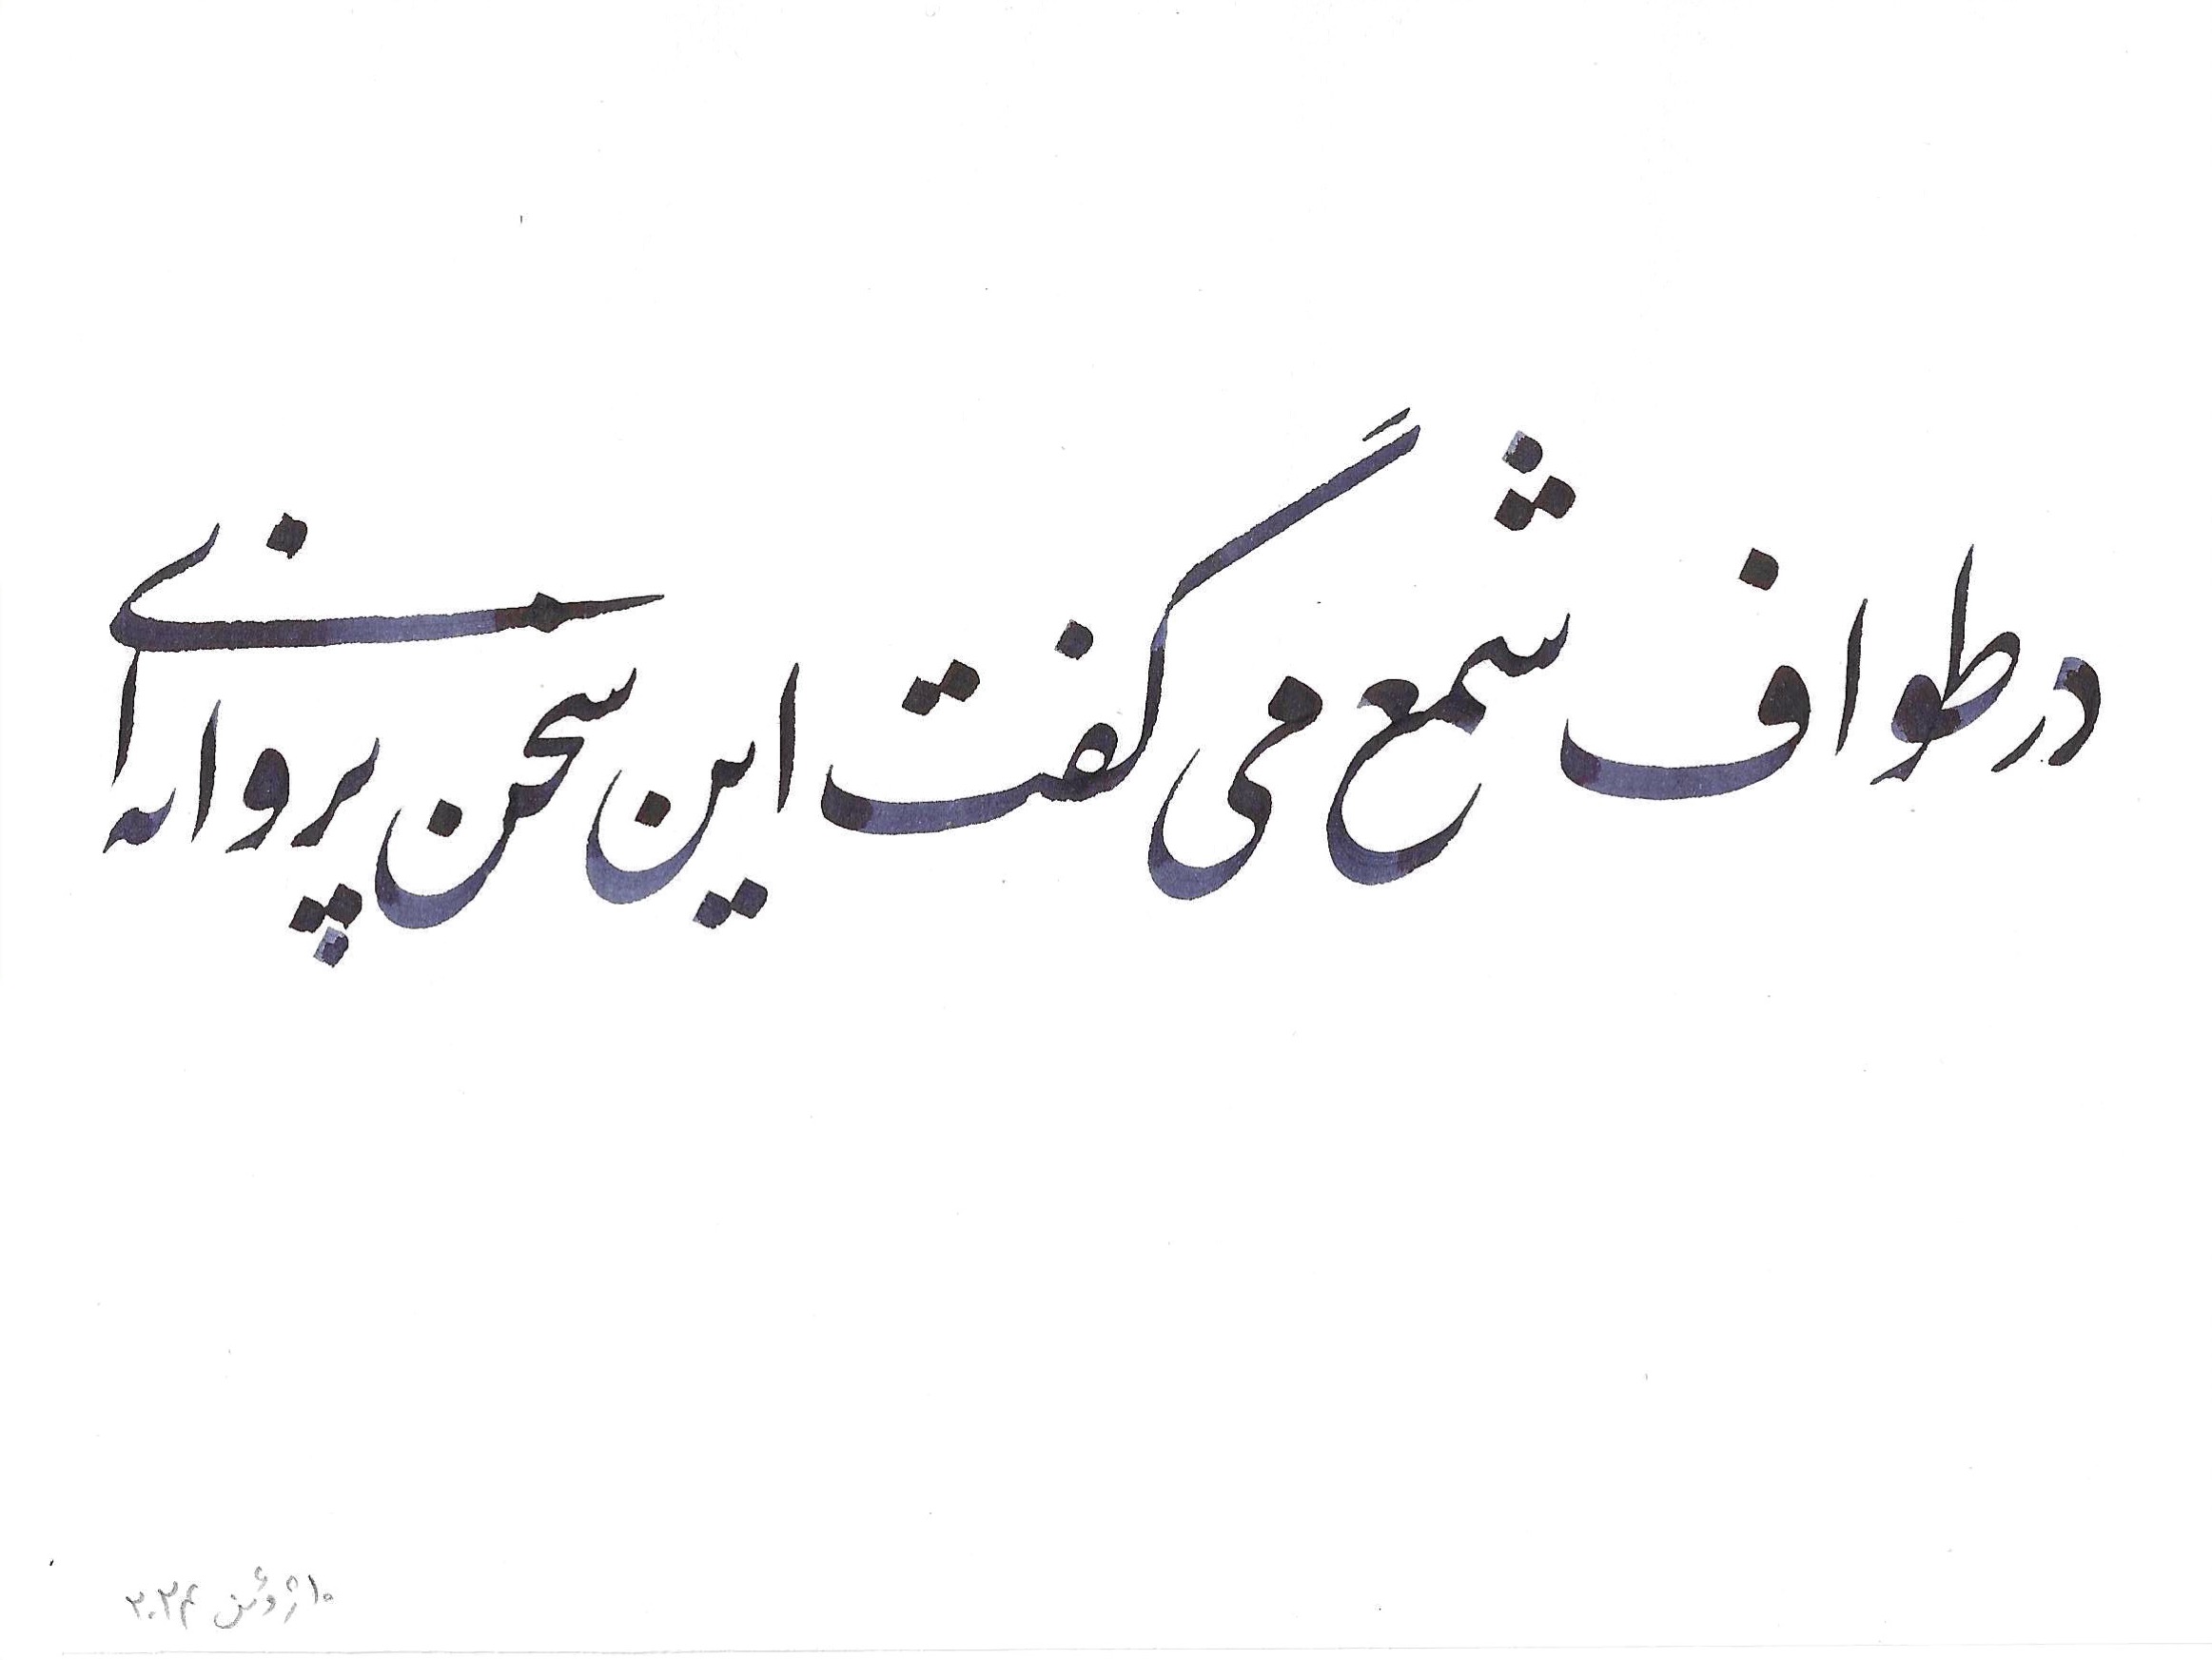 در طواف شمع می گفت این سخن پروانه ای
۱۰ ژوئن ۲۰۲۴